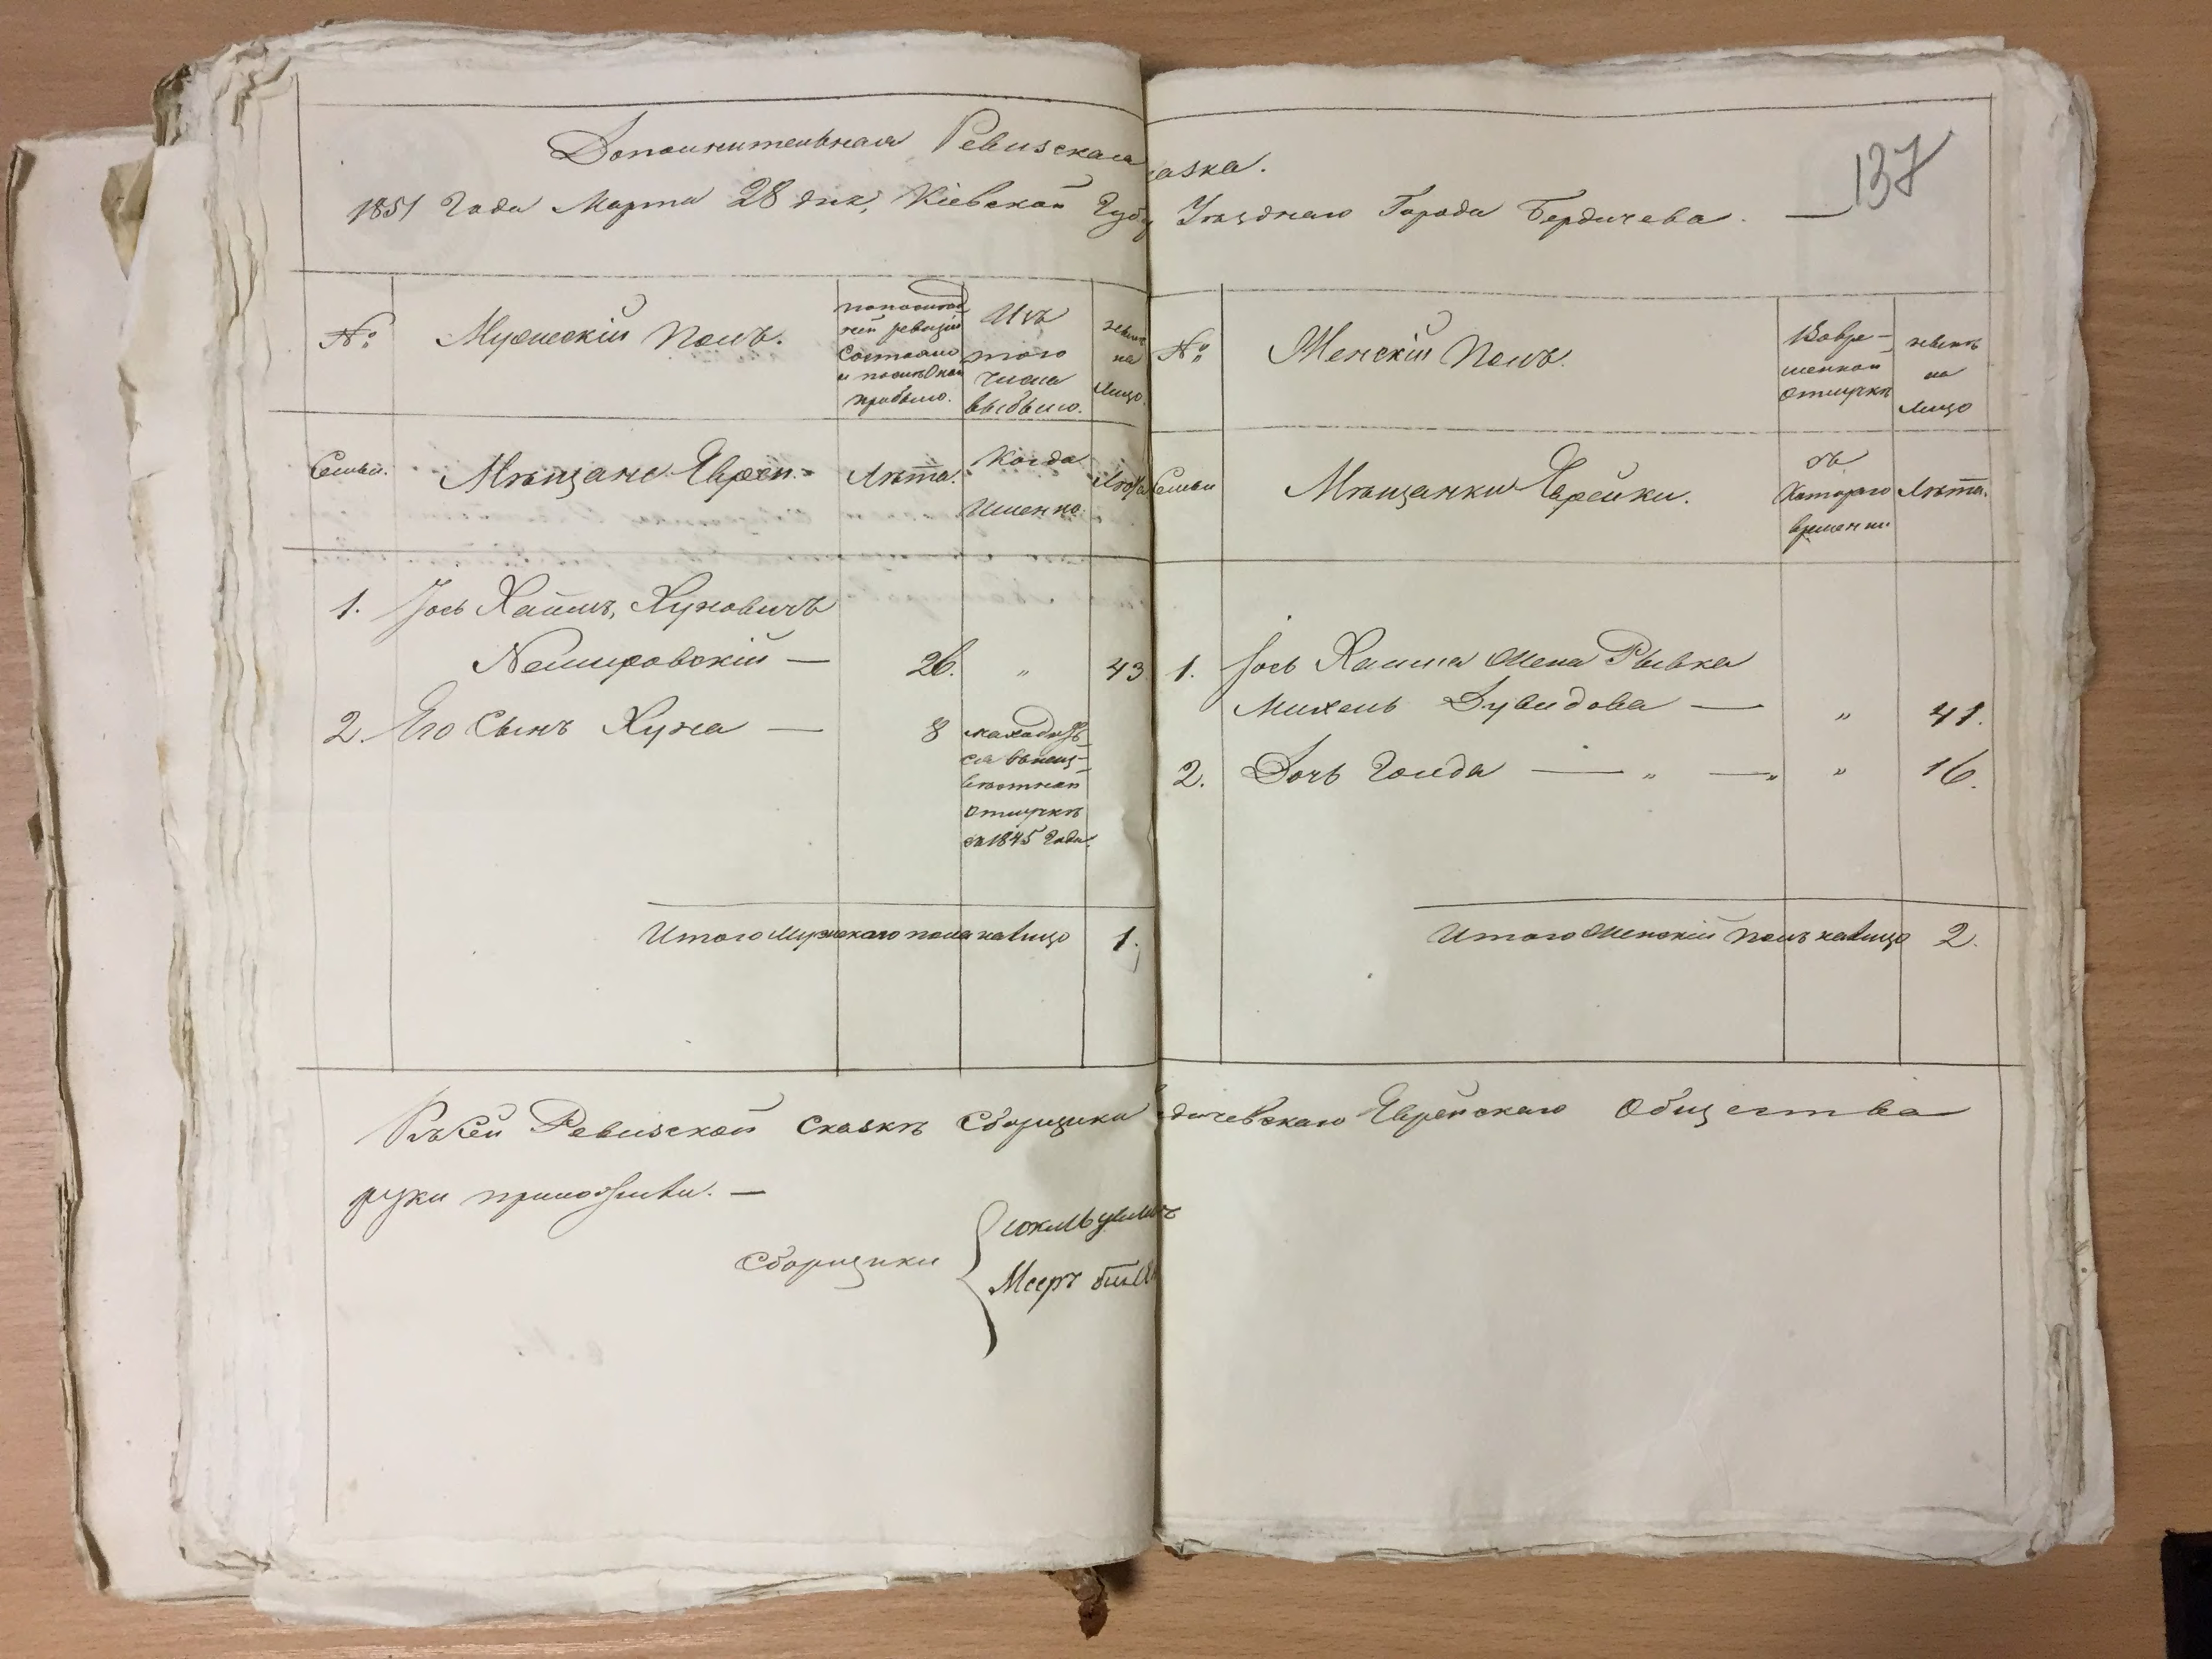 Дополнительная Ревизская
1851 Года Марта 28 дня, Кіевской Губ
№
Мужескій Полъ.
По послѣд
ней ревизіи
Состояло
и послѣ оной
прибыло.
Изъ
того
числа
выбыло.
нынѣ
на
лицо.
Семьи.
Мѣщане Евреи.
Лѣта.
Когда
Именно.
Лѣта
1. Іось Хаимъ, Хуновичъ
Немировскій — 26. „ 43
2. Его Сынъ Хуна — 8
находит
ся въ неиз-
вѣстной
отлучкѣ
съ 1845 Года.
Итого мужескаго пола налицо 1.
Къ Сей Ревизской Сказкѣ Сборщики
руки приложили. —
Сборщики
Мееръ
137
азка.
Уѣзднаго Города Бердичева. —
№
Женскій Полъ.
Вовре-
менной
отлучкѣ
нынѣ
на
лицо
Семьи
Мѣщанки Еврейки.
съ
Котораго
времени
Лѣта.
1. Іось Хаима Жена Рывка
Михель Дувидова — „ 41.
2. Дочь Голда — „ — „ „ 16.
Итого Женскій Полъ налицо 2.
дичевскаго Еврейскаго Общества